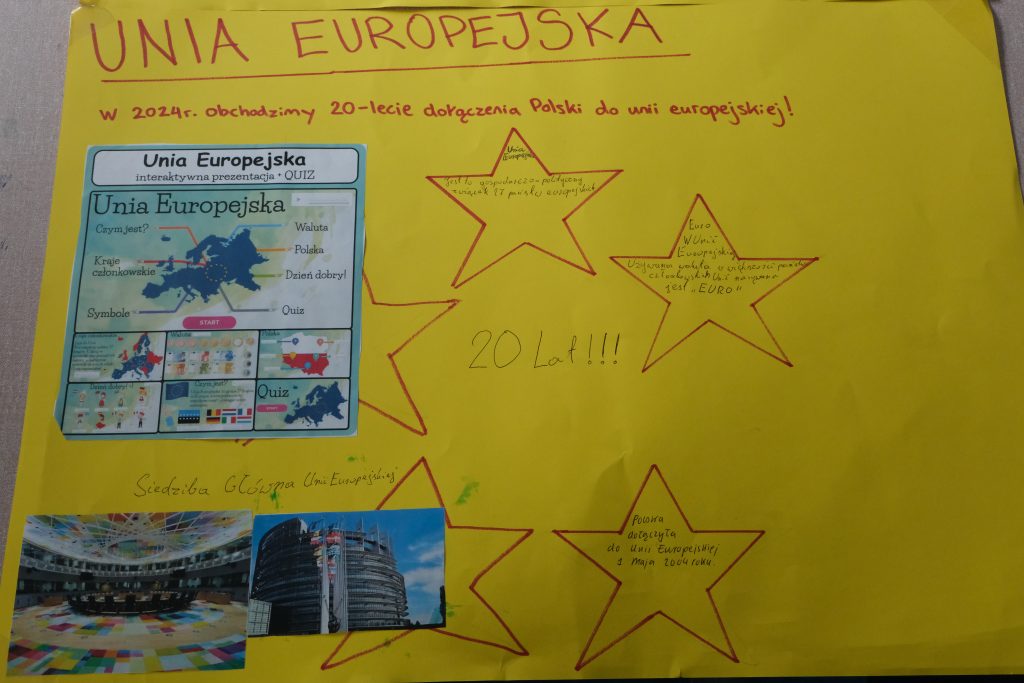 UNIA EUROPEJSKA
W 2024r. obchodzimy 20-lecie dołączenia Polski do unii europejskiej!
Unia Europejska
interaktywna prezentacja + QUIZ
Unia Europejska
Czym jest?
Waluta
Kraje
członkowskie
Polska
Dzień dobry!
Symbole
Quiz
START
Waluta
Dzień dobry!
Czym jest?
Quiz
START
Unia
Europejska
jest to gospodarczo-polityczny
związek 27 państw europejskich
Euro
W Unii
Europejskiej
Używana waluta w większości państw
członkowskich Unii nazywana
jest „EURO"
20 Lat!!!
Siedziba Główna Unii Europejskiej
Polska
dołączyła
do Unii Europejskiej
1 maja 2004 roku.